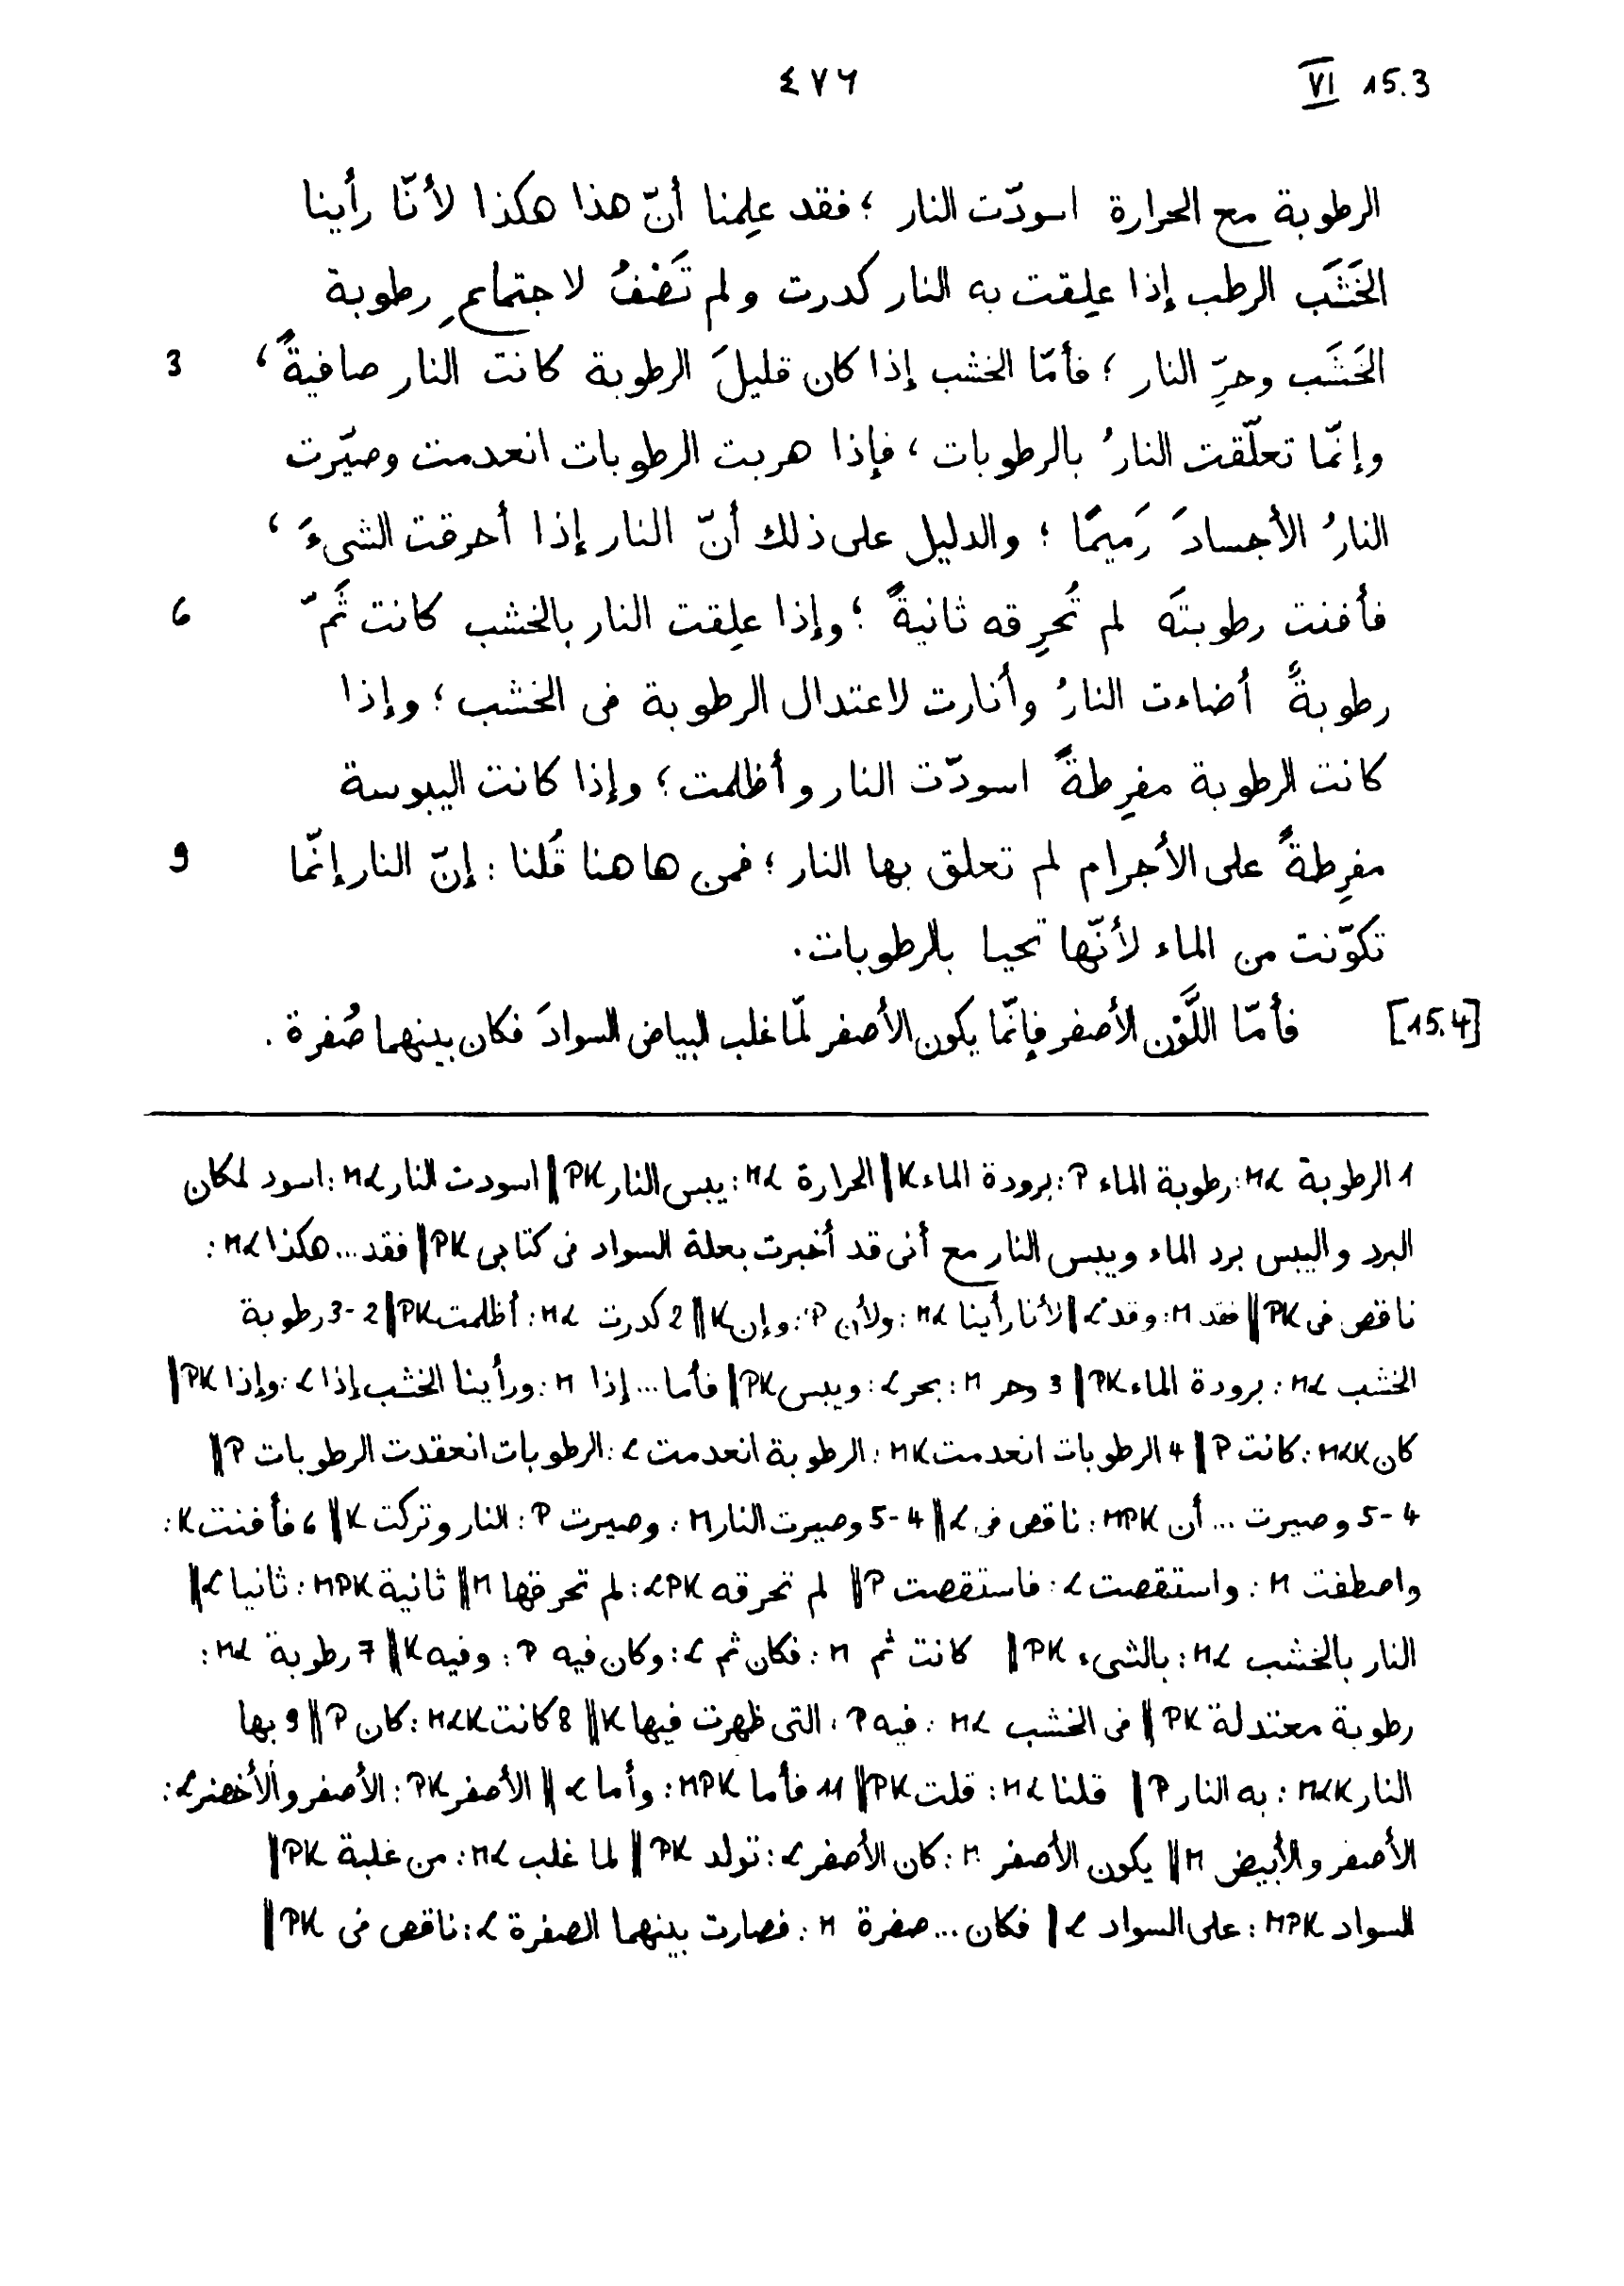 VI 15.3 ٤٧٦
الرطوبة مع الحرارة اسودّت النار ؛ فقد علِمنا أنّ هذا هكذا لأنّا رأينا
الخَشَب الرطب إذا علِقت به النار كدرت ولم تَصْفُ لاجتماعِ رطوبة
الخَشَب وحرِّ النار ؛ فأمّا الخشب إذا كان قليلَ الرطوبة كانت النار صافيةً ، 3
وإنّما تعلّقت النارُ بالرطوبات ، فإذا هربت الرطوبات انعدمت وصيّرت
النارُ الأجسادَ رَميمًا ؛ والدليل على ذلك أنّ النار إذا أحرقت الشىءَ ،
فأفنت رطوبتَه لم تُحرِقه ثانيةً ؛ وإذا علِقت النار بالخشب كانت ثَمّ 6
رطوبةً أضاءت النارُ وأنارت لاعتدال الرطوبة فى الخشب ؛ وإذا
كانت الرطوبة مفرِطةً اسودّت النار وأظلمت ؛ وإذا كانت اليبوسة
مفرِطةً على الأجرام لم تعلق بها النار ؛ فمن هاهنا قُلنا : إنّ النار إنّما 9
تكوّنت من الماء لأنّها تحيا بالرطوبات.
[15.4] فأمّا اللَّوْن الأصفر فإنّما يكون الأصفر لمّا غلب البياض السوادَ فكان بينهما صُفرة .
1 الرطوبة ML : رطوبة الماء P : برودة الماء K ‖ الحرارة ML : يبس النار PK ‖ اسودت النار ML : اسود لمكان
البرد واليبس برد الماء ويبس النار مع أنى قد أخبرت بعلة السواد فى كتابى PK ‖ فقد ... هكذا ML :
ناقص فى PK ‖ فقد M : وقد L ‖ لأنا رأينا ML : ولأن P : وإن K ‖ 2 كدرت ML : أظلمت PK ‖ 2-3 رطوبة
الخشب ML : برودة الماء PK ‖ 3 وحر M : بحر L : ويبس PK ‖ فأما ... إذا M : ورأينا الخشب إذا L : وإذا PK ‖
كان MLK : كانت P ‖ 4 الرطوبات انعدمت MK : الرطوبة انعدمت L : الرطوبات انعقدت الرطوبات P ‖
4-5 وصيرت ... أن MPK : ناقص فى L ‖ 4-5 وصيرت النار M : وصيرت P : النار وتركت K ‖ 6 فأفنت K :
واصطفت M : واستقصت L : فاستقصت P ‖ لم تحرقه LPK : لم تحرقها M ‖ ثانية MPK : ثانيا L ‖
النار بالخشب ML : بالشىء PK ‖ كانت ثم M : فكان ثم L : وكان فيه P : وفيه K ‖ 7 رطوبة ML :
رطوبة معتدلة PK ‖ فى الخشب ML : فيه P : التى ظهرت فيها K ‖ 8 كانت MLK : كان P ‖ 9 بها
النار MLK : به النار P ‖ قلنا ML : قلت PK ‖ 11 فأما MPK : وأما L ‖ الأصفر PK : الأصفر والأخضر L :
الأصفر والأبيض M ‖ يكون الأصفر M : كان الأصفر L : تولد PK ‖ لما غلب ML : من غلبة PK ‖
السواد MPK : على السواد L ‖ فكان ... صفرة M : فصارت بينهما الصفرة L : ناقص فى PK ‖